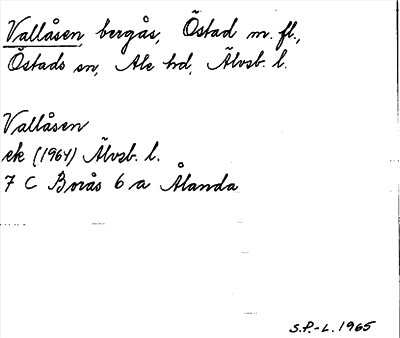 Vallåsen, bergås, Östad m. fl.,
Östads sn, Ale hd, Älvsb. l.
Vallåsen
ek (1964) Älvsb. l.
7 C Borås 6 a Ålanda
S.P.-L. 1965